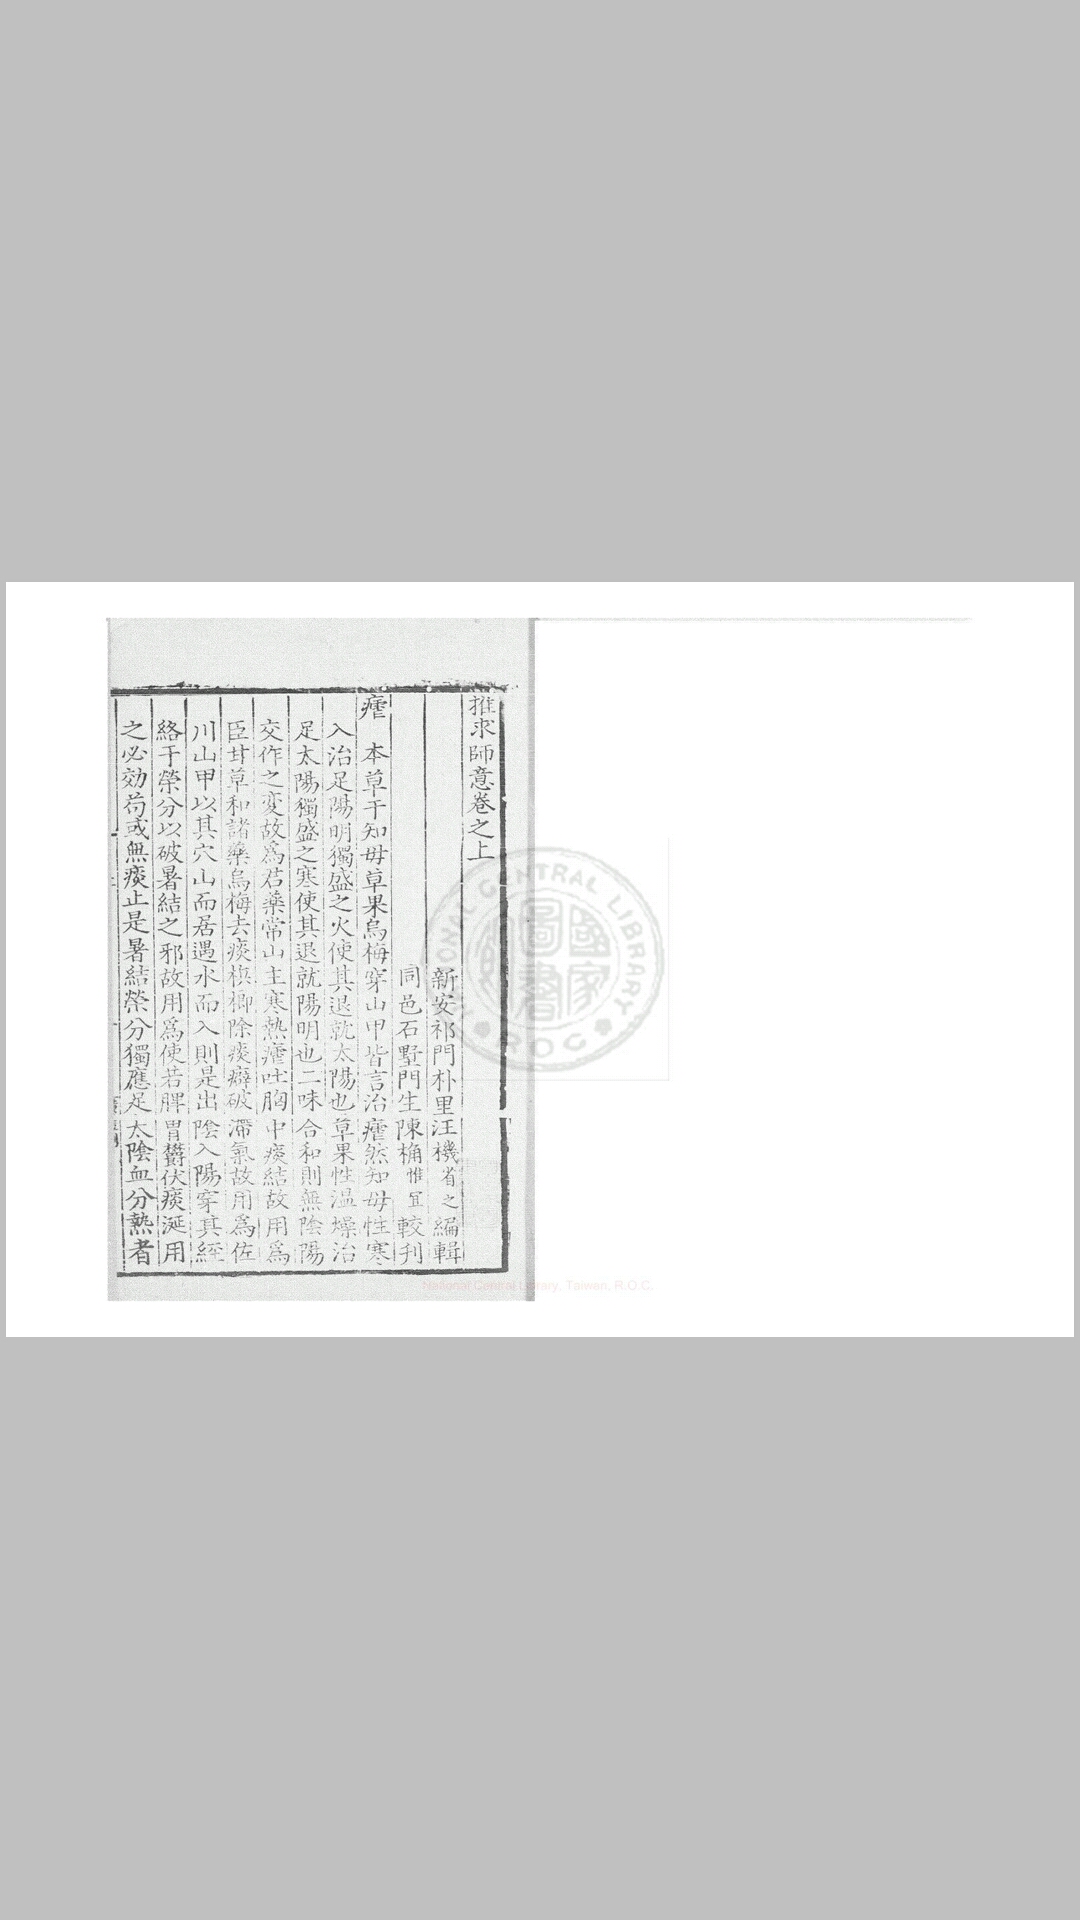 推求師意卷之上
新安祁門朴里汪機省之編輯
同邑石墅門生陳桷惟宜較刋
瘧 本草干知母草果烏梅穿山甲皆言治瘧然知母性寒
入治足陽明獨盛之火使其退就太陽也草果性温燥治
足太陽獨盛之寒使其退就陽明也二味合和則無陰陽
交作之変故爲君藥常山主寒熱瘧吐胸中痰結故用爲
臣甘草和諸藥烏梅去痰檳榔除痰癖破滯氣故用爲佐
川山甲以其穴山而居遇水而入則是出陰入陽穿其經
絡于榮分以破暑結之邪故用爲使若脾胃欝伏痰涎用
之必効苟或無痰止是暑結榮分獨應足太陰血分熱者
NATIONAL CENTRAL LIBRARY
R.O.C
國家圖書館
National Central Library, Taiwan, R.O.C.